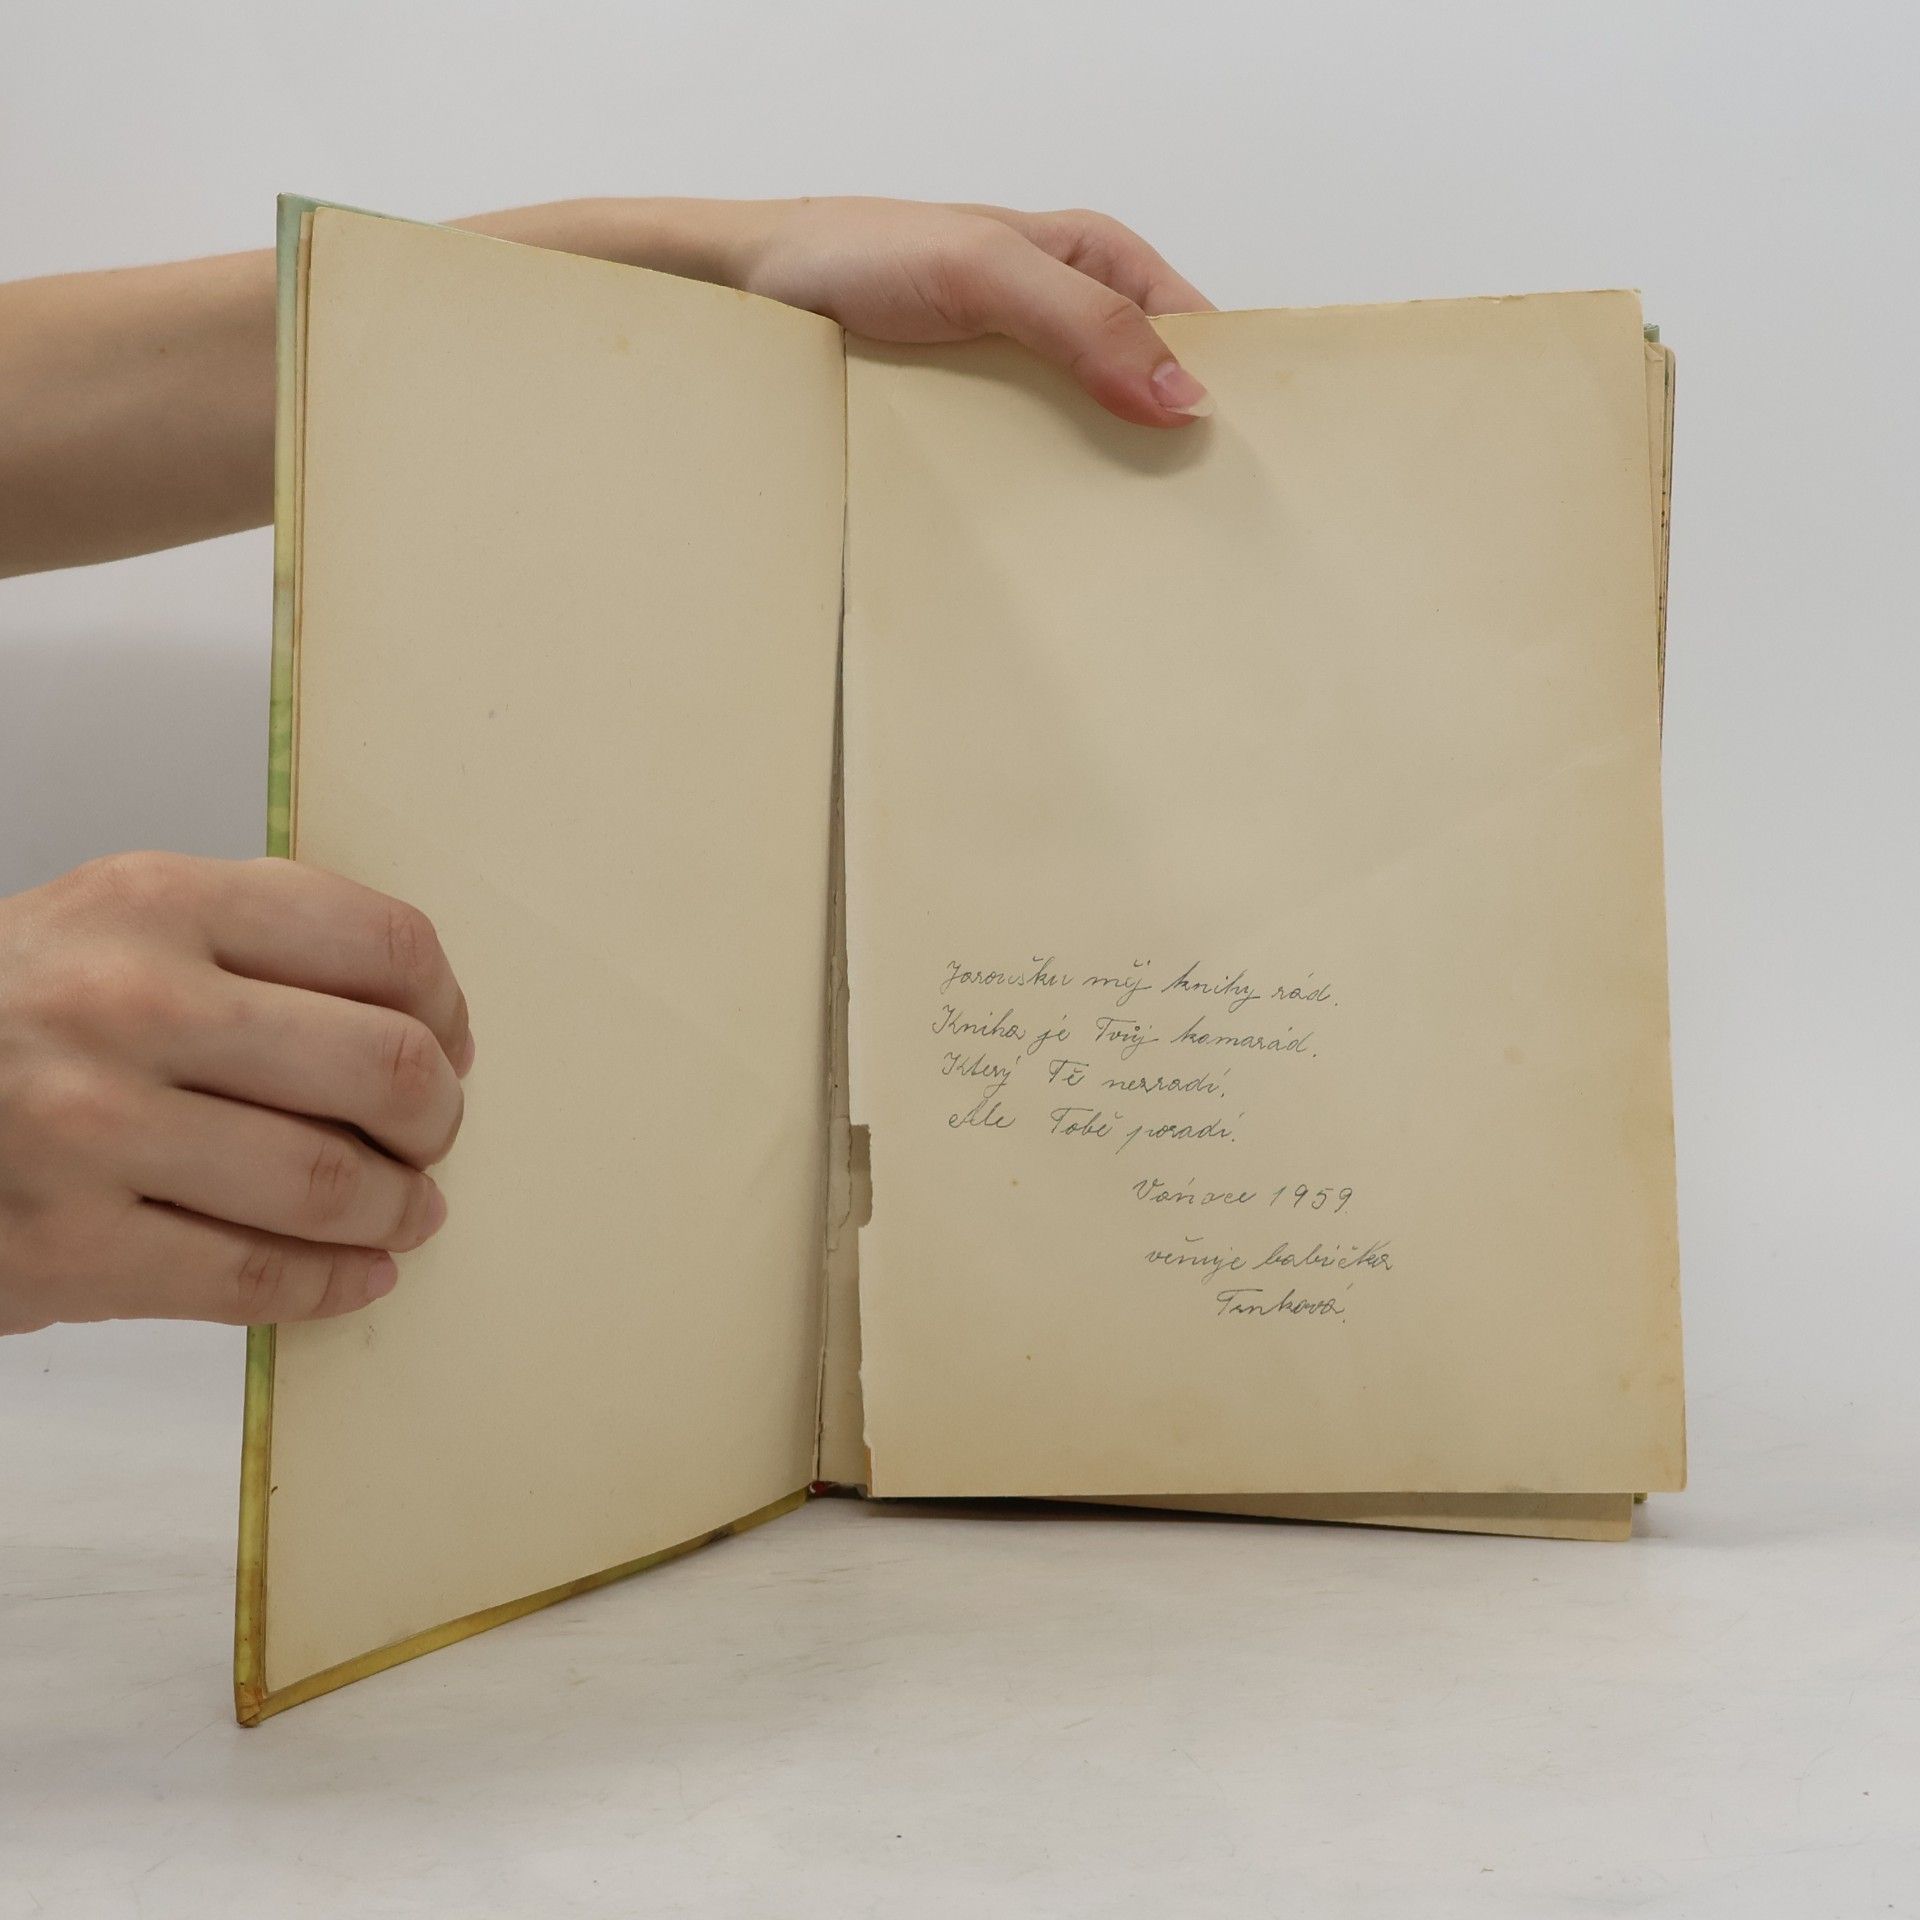 Jaroušku měj knihy rád.
Kniha je Tvůj kamarád.
Který Tě nezradí,
Ale Tobě poradí.
Vánoce 1959.
věnuje babička
Trnková.